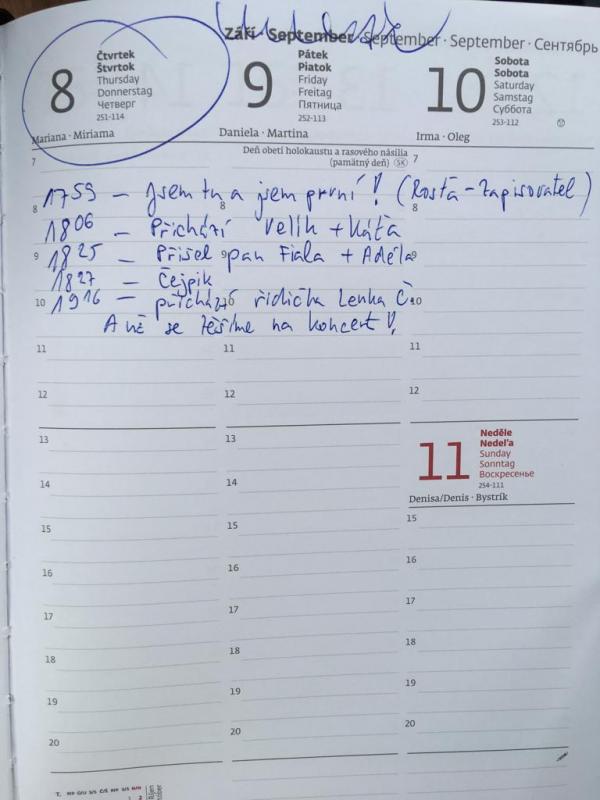 Září · September · September · September · Сентябрь
8
Čtvrtek
Štvrtok
Thursday
Donnerstag
Четверг
251-114
Mariana · Miriama
9
Pátek
Piatok
Friday
Freitag
Пятница
252-113
Daniela · Martina
10
Sobota
Sobota
Saturday
Samstag
Суббота
253-112
Irma · Oleg
Deň obetí holokaustu a rasového násilia
(pamätný deň) SK
7
7
1759 – Jsem tu a jsem první! (Rosťa – Zapisovatel)
8
8
8
1806 – Přichází Velík + Káťa
1825 – Přišel pan Fiala + Adéla
9
9
9
1827 – Čejpik
1916 – přichází řidička Lenka Č.
10
10
10
A už se těšíme na koncert!
11
11
11
12
12
12
13
13
14
14
15
15
16
16
17
17
18
18
19
19
20
20
11
Neděle
Nedeľa
Sunday
Sonntag
Воскресенье
254-111
Denisa/Denis · Bystrík
15
16
17
18
19
20